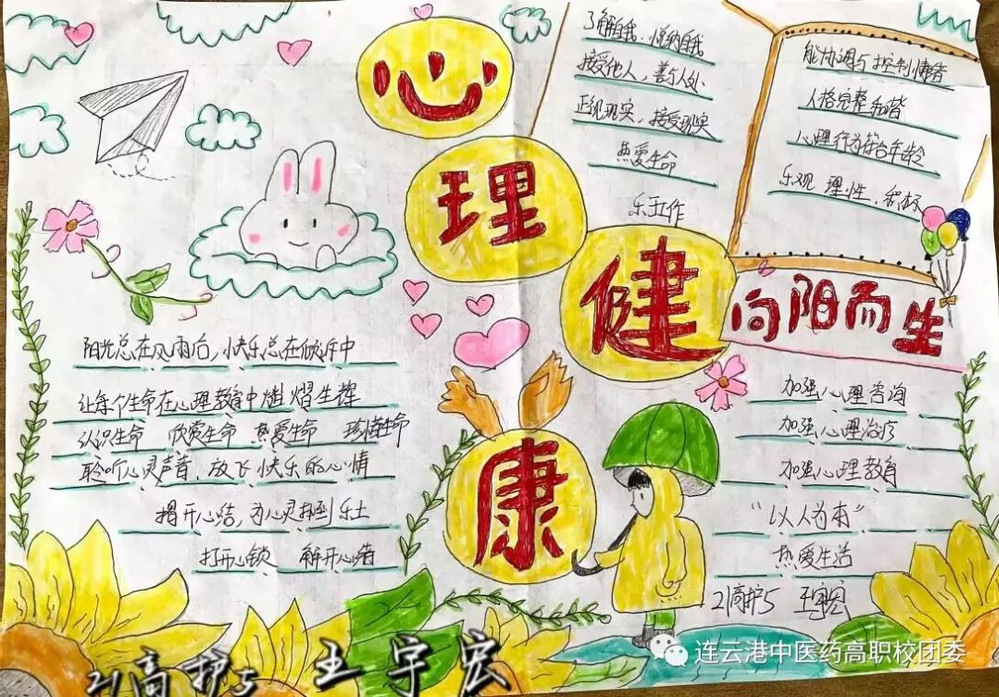 心
理
健
康
向阳而生
了解自我，悦纳自我
接受他人，善与人处
正视现实，接受现实
热爱生命
乐于工作
能协调与控制情绪
人格完整和谐
心理行为符合年龄
乐观 理性，积极
阳光总在风雨后，快乐总在倾诉中
让每个生命在心理教育中熠熠生辉
认识生命 欣赏生命 热爱生命 珍惜生命
聆听心灵声音，放飞快乐的心情
揭开心结，为心灵找到乐土
打开心锁 解开心结
加强心理咨询
加强心理治疗
加强心理教育
“以人为本”
热爱生活
21高护5 王宇宏
21高护5 王宇宏
连云港中医药高职校团委